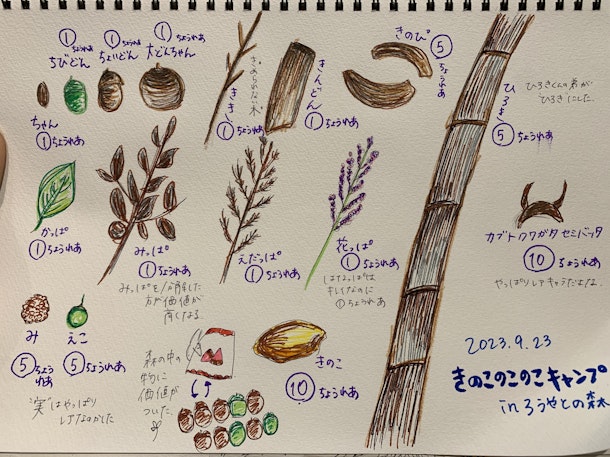 ① ちょうれあ
ちびどん
① ちょうれあ
ちょいどん
① ちょうれあ
大どんちゃん
ちゃん
① ちょうれあ
きき
① ちょうれあ
きめられない木
きんどん
① ちょうれあ
きのぴ
⑤ ちょうれあ
ひろき
⑤ ちょうれあ
ひろきくんの弟が
ひろきにした。
かっぱ
① ちょうれあ
みっぱ
① ちょうれあ
みっぱを分解した
方が価値が
高くなる。
えだっぱ
① ちょうれあ
花っぱ
① ちょうれあ
はなっぱは
キレイなのに
①ちょうれあ
カブトクワガタセミバッタ
⑩ ちょうれあ
やっぱりレアキャラだよな。
み
⑤ ちょうれあ
えこ
⑤ ちょうれあ
"実"はやっぱり
レアなのかした
森の中の
物に
価値が
ついた。
きのこ
⑩ ちょうれあ
2023.9.23
きのこのこのこキャンプ
inろうやとの森